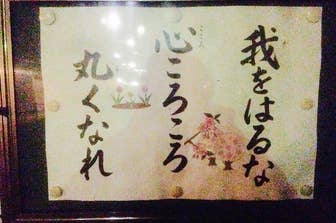 我をはるな
心ころころ
丸くなれ